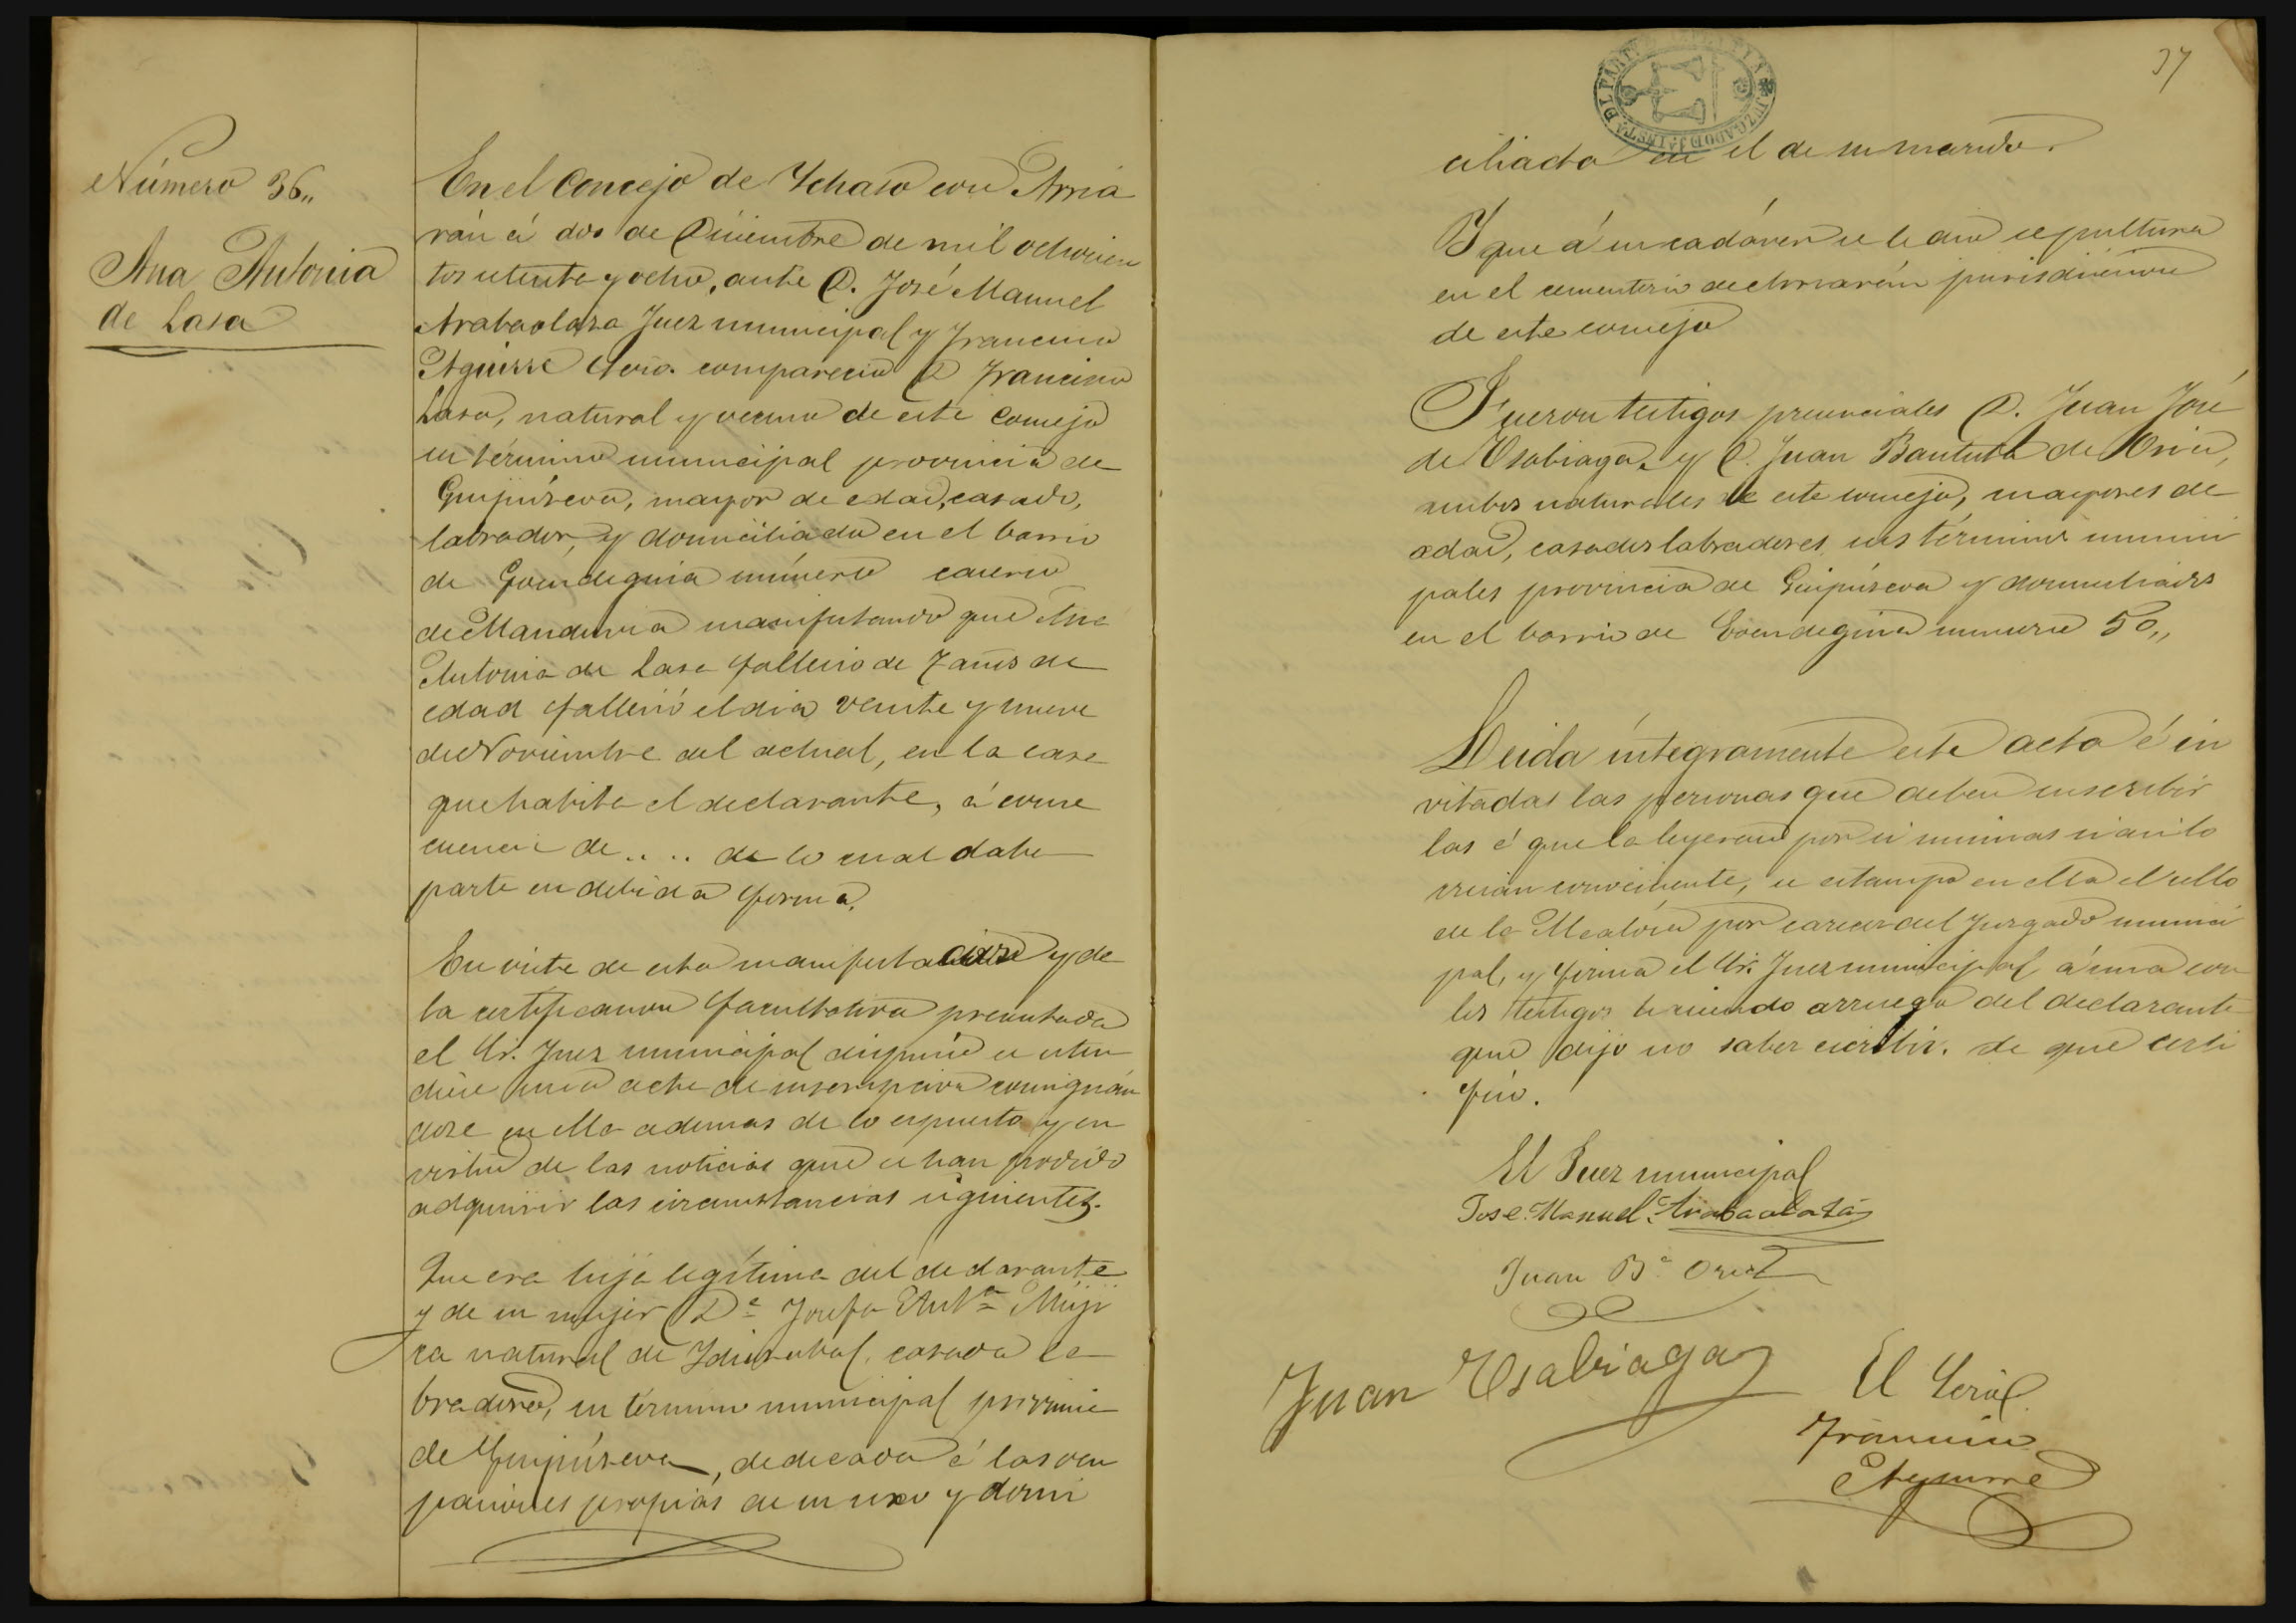 Número 36,,
Ana Antonia
de Lasa
En el Concejo de Ychaso con Arria
rán á dos de Diciembre de mil ochocien
tos setenta y ocho, ante D. José Manuel
Arabaolaza Juez municipal y Francisco
Aguirre Srio. compareció D Francisco
Lasa, natural y vecino de este Concejo
su término municipal provincia de
Guipúzcoa, mayor de edad, casado,
labrador, y domiciliado en el barrio
de Goendeguia número caserio
de manifestando que Ana
Antonia de Lasa fallecio de 7 años de
edad falleció el dia veinte y nueve
de Noviembre del actual, en la casa
que habita el declarante, á conse
cuencia de .. .. de lo cual daba
parte en debida forma.
En vista de esta manifestacion y de
la certificacion facultativa presentada
el Sr. Juez municipal dispuso se esten
diese una acta de inscripcion consignán
dose en ella ademas de lo espuesto y en
virtud de las noticias que se han podido
adquirir las circunstancias siguientes.
Que era hija legítima del declarante
y de su mujer Dª Josefa Antª Muji
ca natural de Idiazabal, casada la
bradora, su término municipal provincia
de Guipúzcoa, dedicada á las ocu
paciones propias de su sexo y domi
37
ciliada en el de su marido.
Y que á su cadáver se le dio sepultura
en el cementerio de jurisdiccion
de este concejo
Fueron testigos presenciales D. Juan José
de Usabiaga y D. Juan Bautista de Oria,
ambos naturales de este concejo, mayores de
edad, casados labradores sus términos munici
pales provincia de Guipúzcoa y domiciliados
en el barrio de Goendeguia numero 50,,
Leida íntegramente esta acta é in
vitadas las personas que deben suscribir
las á que la leyeran por si mismas si asi lo
creian conveniente, se estampó en ella el sello
de la Alcaldía por carecer del Juzgado munici
pal, y firmó el Sr. Juez municipal á una con
los testigos haciendo arruego del declarante
que dijo no saber escribir. de que certi
fico.
El Juez municipal
Jose Manuel Arabaolaza
Juan Bª
Juan Usabiaga
El Srio
Francisco
Aguirre